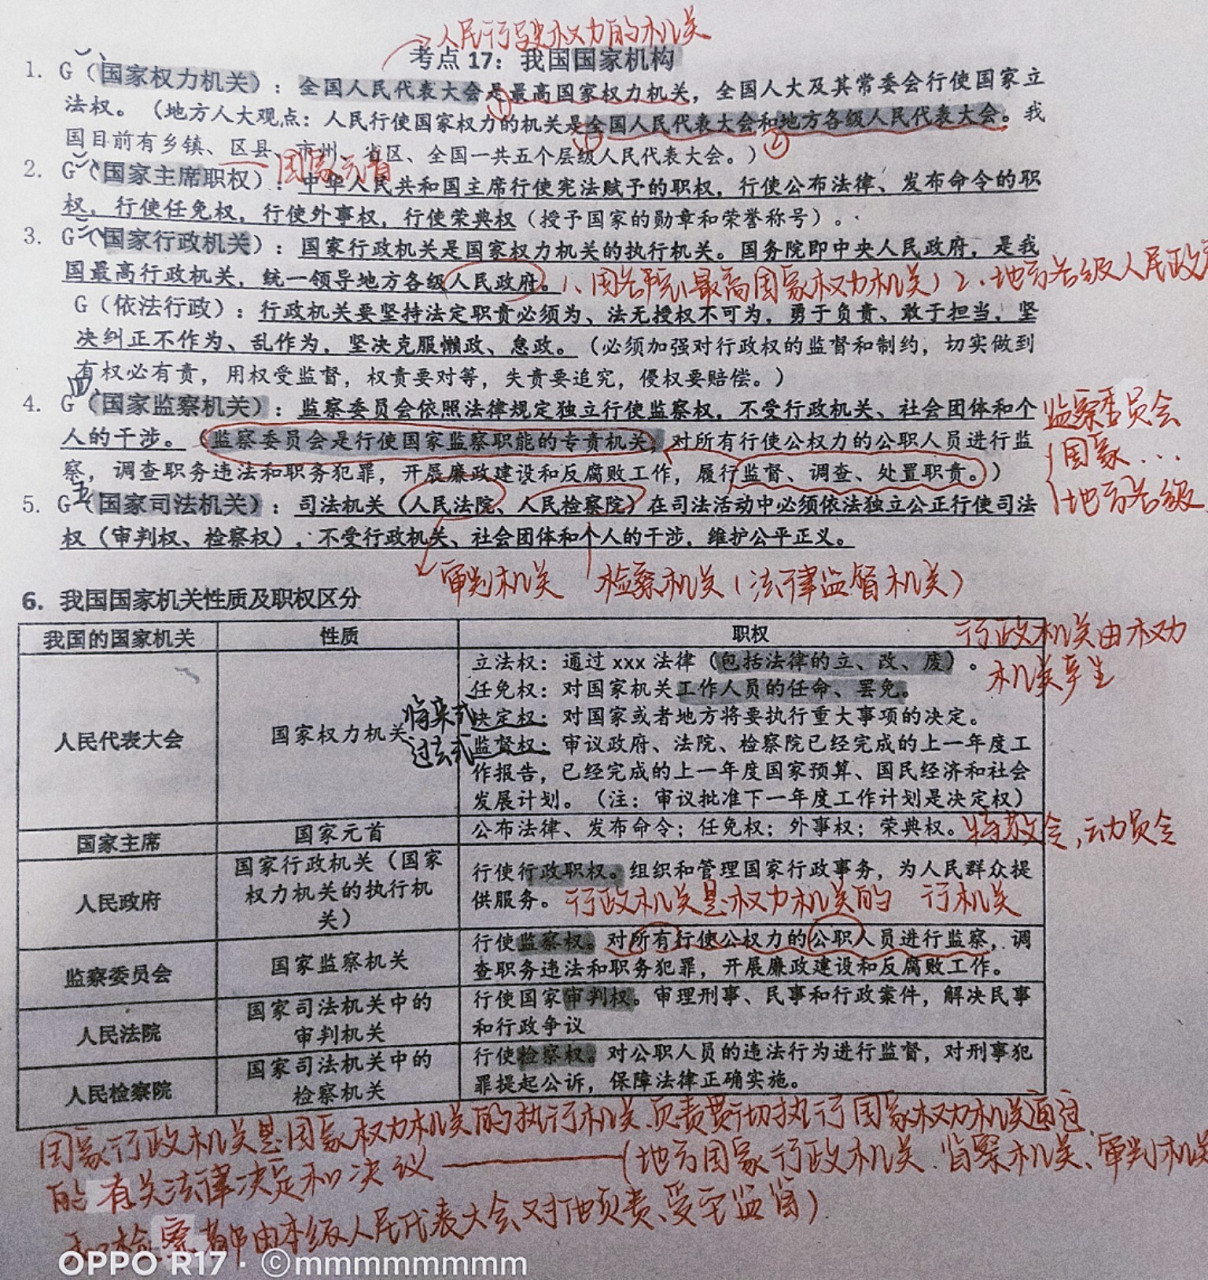 人民行使权力的机关
考点 17：我国国家机构
1. G（国家权力机关）：全国人民代表大会是最高国家权力机关，全国人大及其常委会行使国家立
法权。（地方人大观点：人民行使国家权力的机关是全国人民代表大会和地方各级人民代表大会。我
① ②
国目前有乡镇、区县、市州、省区、全国一共五个层级人民代表大会。）
国家元首
2. G（国家主席职权）：中华人民共和国主席行使宪法赋予的职权，行使公布法律、发布命令的职
权，行使任免权，行使外事权，行使荣典权（授予国家的勋章和荣誉称号）。
3. G（国家行政机关）：国家行政机关是国家权力机关的执行机关。国务院即中央人民政府，是我
国最高行政机关，统一领导地方各级人民政府。1、国务院（最高国家权力机关）2、地方各级人民政
G（依法行政）：行政机关要坚持法定职责必须为、法无授权不可为，勇于负责、敢于担当，坚
决纠正不作为、乱作为，坚决克服懒政、怠政。（必须加强对行政权的监督和制约，切实做到
有权必有责，用权受监督，权责要对等，失责要追究，侵权要赔偿。）
四
4. G（国家监察机关）：监察委员会依照法律规定独立行使监察权，不受行政机关、社会团体和个
人的干涉。（监察委员会是行使国家监察职能的专责机关，对所有行使公权力的公职人员进行监
察，调查职务违法和职务犯罪，开展廉政建设和反腐败工作，履行监督、调查、处置职责。）
监察委员会
国家...
地方各级
五
5. G（国家司法机关）：司法机关（人民法院、人民检察院）在司法活动中必须依法独立公正行使司法
权（审判权、检察权），不受行政机关、社会团体和个人的干涉，维护公平正义。
审判机关 检察机关（法律监督机关）
6. 我国国家机关性质及职权区分
我国的国家机关 性质 职权
行政机关由权力
机关产生
人民代表大会 国家权力机关
将来式
过去式
立法权：通过 xxx 法律（包括法律的立、改、废）。
任免权：对国家机关工作人员的任命、罢免。
决定权：对国家或者地方将要执行重大事项的决定。
监督权：审议政府、法院、检察院已经完成的上一年度工
作报告，已经完成的上一年度国家预算、国民经济和社会
发展计划。（注：审议批准下一年度工作计划是决定权）
国家主席 国家元首 公布法律、发布命令；任免权；外事权；荣典权。特赦令，动员令
人民政府
国家行政机关（国家
权力机关的执行机
关）
行使行政职权。组织和管理国家行政事务，为人民群众提
供服务。行政机关是权力机关的 行机关
监察委员会 国家监察机关
行使监察权。对所有行使公权力的公职人员进行监察，调
查职务违法和职务犯罪，开展廉政建设和反腐败工作。
人民法院
国家司法机关中的
审判机关
行使国家审判权。审理刑事、民事和行政案件，解决民事
和行政争议
人民检察院
国家司法机关中的
检察机关
行使检察权。对公职人员的违法行为进行监督，对刑事犯
罪提起公诉，保障法律正确实施。
国家行政机关是国家权力机关的执行机关、负责贯彻执行国家权力机关通过
的有关法律决定和决议——（地方国家行政机关、监察机关、审判机关
和检察 都由本级人民代表大会、对他负责、受它监督）
OPPO R17 · ©mmmmmmmmm